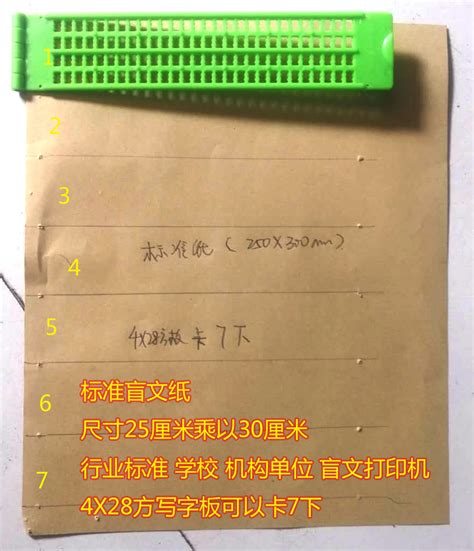 1
2
3
标准纸（250X300mm）
4
5
4X28方板 卡7下
6
标准盲文纸
尺寸25厘米乘以30厘米
行业标准 学校 机构单位 盲文打印机
7
4X28方写字板可以卡7下